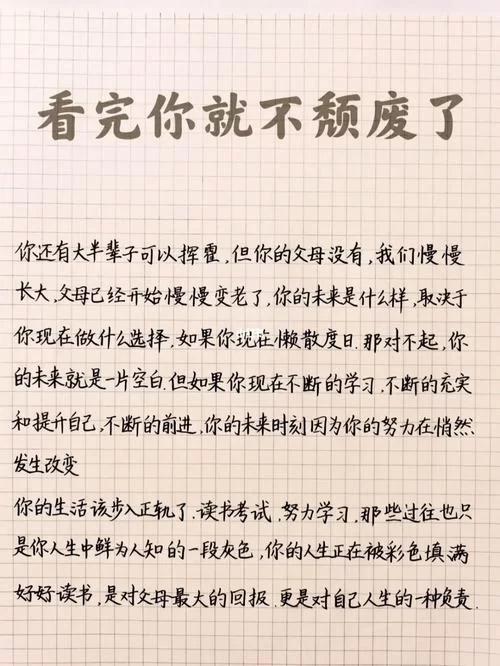 看完你就不颓废了
你还有大半辈子可以挥霍,但你的父母没有,我们慢慢
长大,父母已经开始慢慢变老了,你的未来是什么样,取决于
你现在做什么选择,如果你现在懒散度日.那对不起,你
的未来就是一片空白.但如果你现在不断的学习,不断的充实
和提升自己,不断的前进,你的未来时刻因为你的努力在悄然
发生改变
你的生活该步入正轨了.读书考试,努力学习,那些过往也只
是你人生中鲜为人知的一段灰色,你的人生正在被彩色填满
好好读书,是对父母最大的回报.更是对自己人生的一种负责.